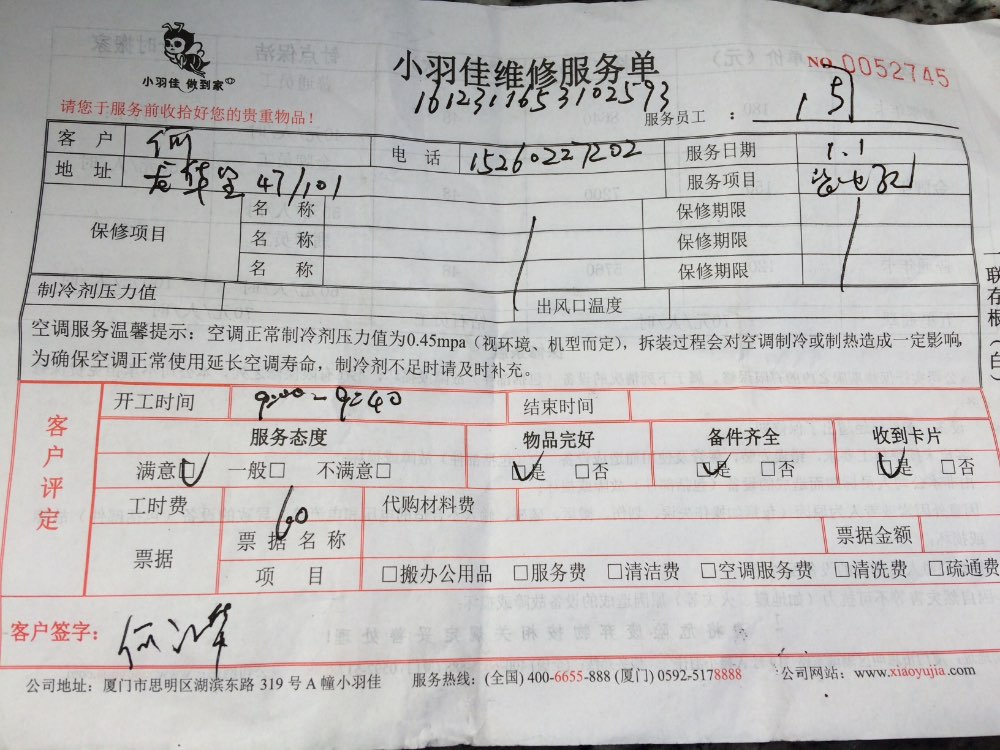 小羽佳 做到家
小羽佳维修服务单
NO 0052745
1612311653102593
请您于服务前收拾好您的贵重物品！
服务员工 ：
客 户 何 电 话 15260227202 服务日期 1.1
地 址 47/101 服务项目
保修项目 名 称 保修期限
名 称 保修期限
名 称 保修期限
制冷剂压力值 出风口温度
空调服务温馨提示：空调正常制冷剂压力值为0.45mpa（视环境、机型而定），拆装过程会对空调制冷或制热造成一定影响，
为确保空调正常使用延长空调寿命，制冷剂不足时请及时补充。
联
存
根
（
白
客户评定
开工时间 9:00-9:40 结束时间
服务态度 物品完好 备件齐全 收到卡片
满意□ 一般□ 不满意□ □是 □否 □是 □否 □是 □否
工时费 60 代购材料费
票据 票据名称 票据金额
项 目 □搬办公用品 □服务费 □清洁费 □空调服务费 □清洗费 □疏通费
客户签字：
公司地址：厦门市思明区湖滨东路 319 号 A 幢小羽佳 服务热线：(全国) 400-6655-888 (厦门) 0592-5178888 公司网站：www.xiaoyujia.com